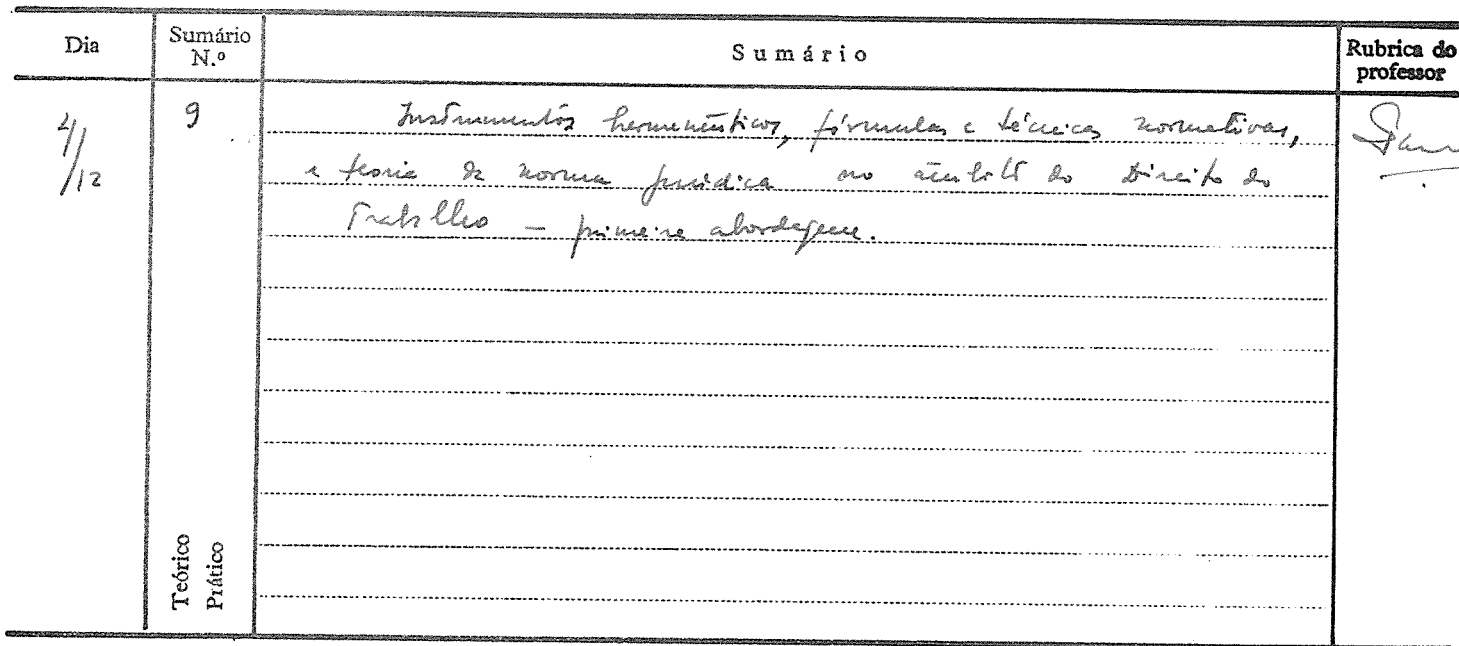 Dia Sumário N.º Sumário Rubrica do professor
9 Instrumentos hermenêuticos, fórmulas e técnicas normativas,
/12 e teoria da norma jurídica no âmbito do Direito do
Trabalho — primeira abordagem.
Teórico
Prático